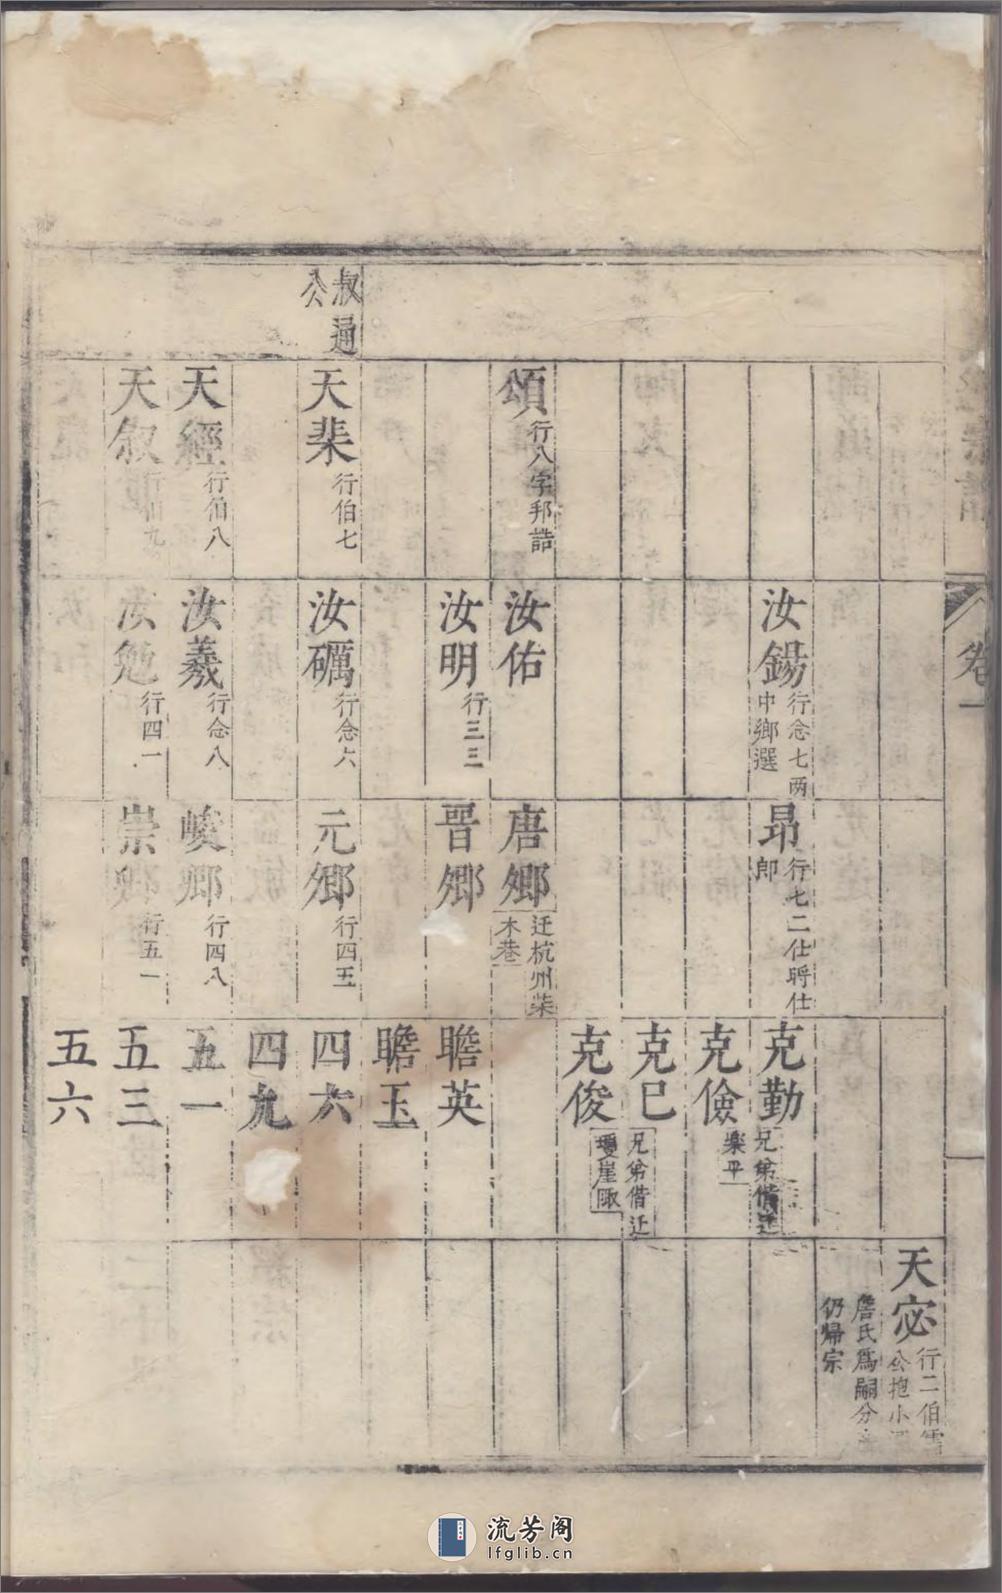 卷一
天宓
行二伯儒
公抱小
詹氏爲嗣分
仍歸宗
汝錫
行念七两
中鄉選
昂
行七二仕將仕
郎
克勤
兄弟偕迁
樂平
克儉
克巳
兄弟偕迁
瓊崖
克俊
頌
行八字邦誥
汝佑
唐鄉
迁杭州柴
木巷
汝明
行三三
晋鄉
瞻英
瞻玉
叔通
公
天棐
行伯七
汝礪
行念六
元鄉
行四五
四六
四九
天經
行伯八
汝羲
行念八
峻鄉
行四八
五一
天叙
行伯九
汝勉
行四一
崇
行五一
五三
五六
流芳阁
lfglib.cn